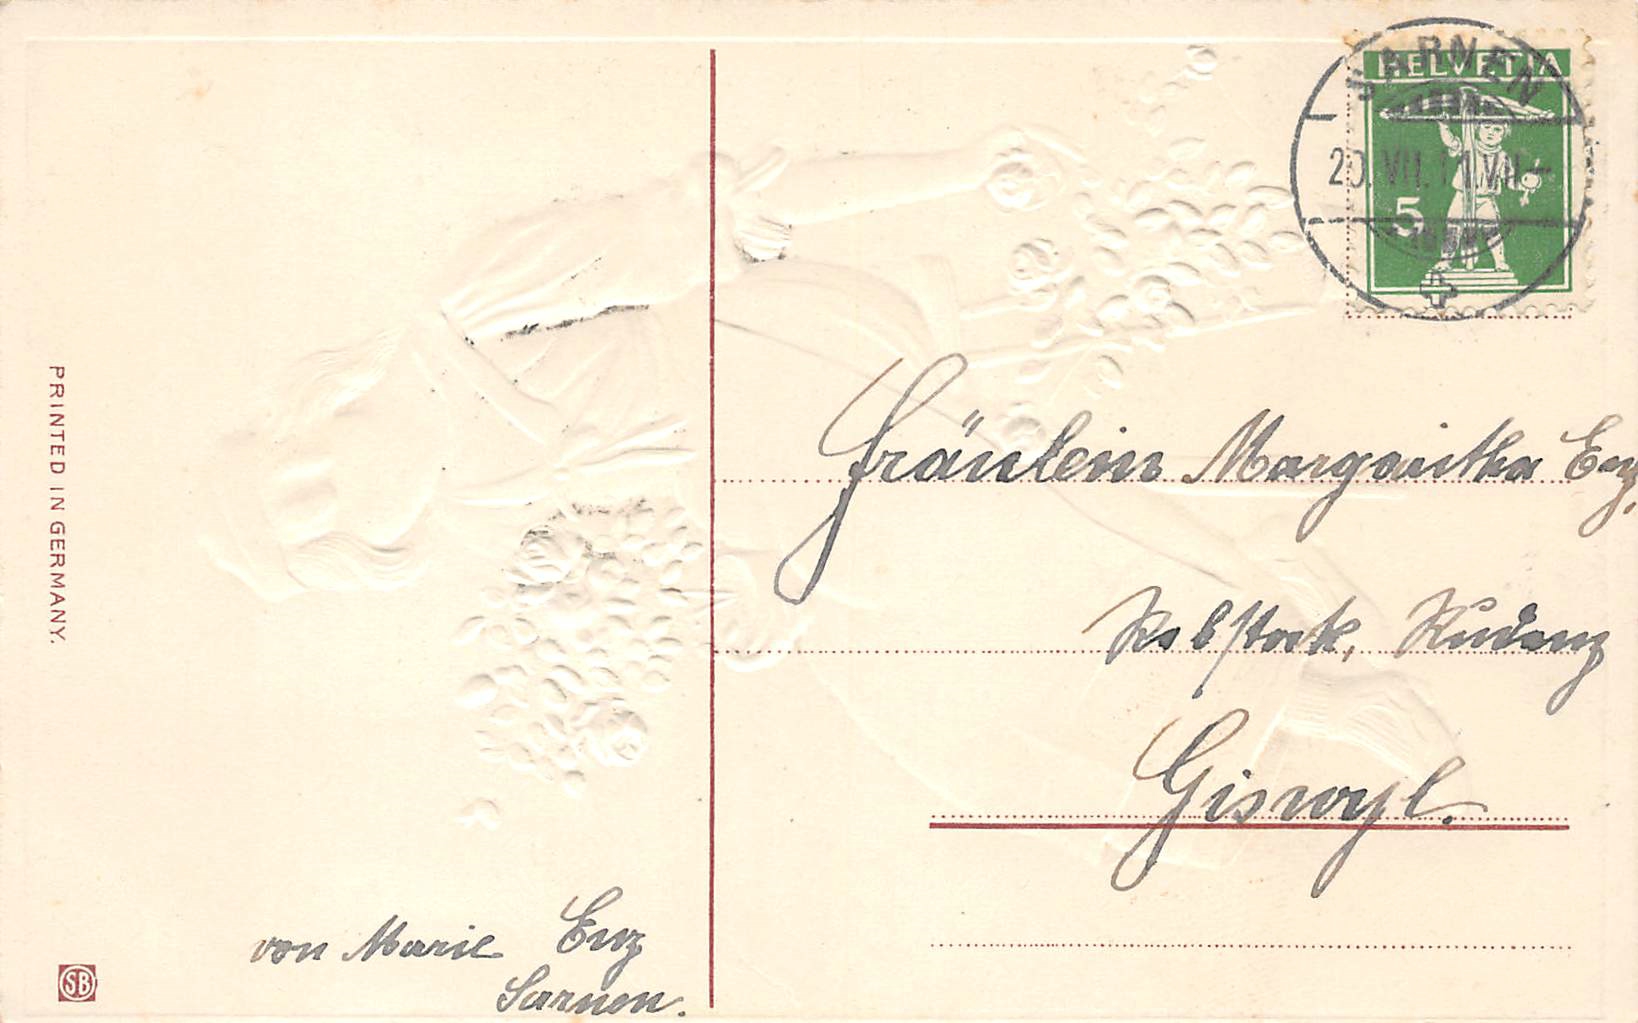 SARNEN
HELVETIA
20.VII.11.VII-
5
Fräulein Margaritha Enz,
Rebstock, Rudenz
Giswyl.
PRINTED IN GERMANY.
von Marie Enz
Sarnen.
SB